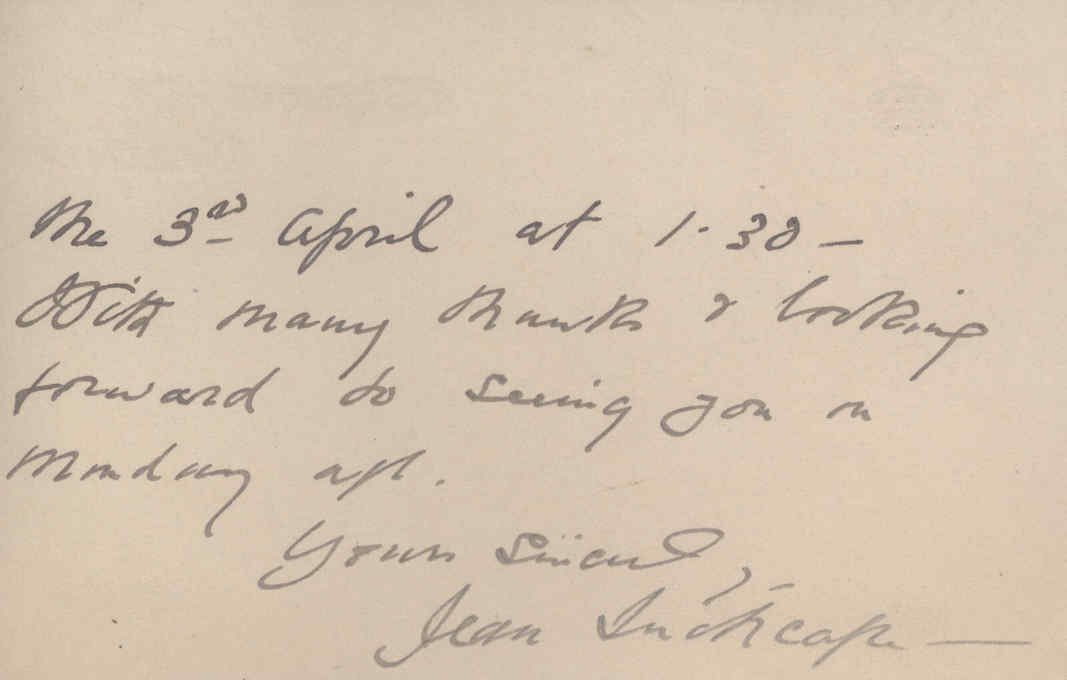 the 3rd April at 1.30 –
With many thanks & looking
forward to seeing you on
Monday aft.
Yours sincerely,
Jean Inchcape —